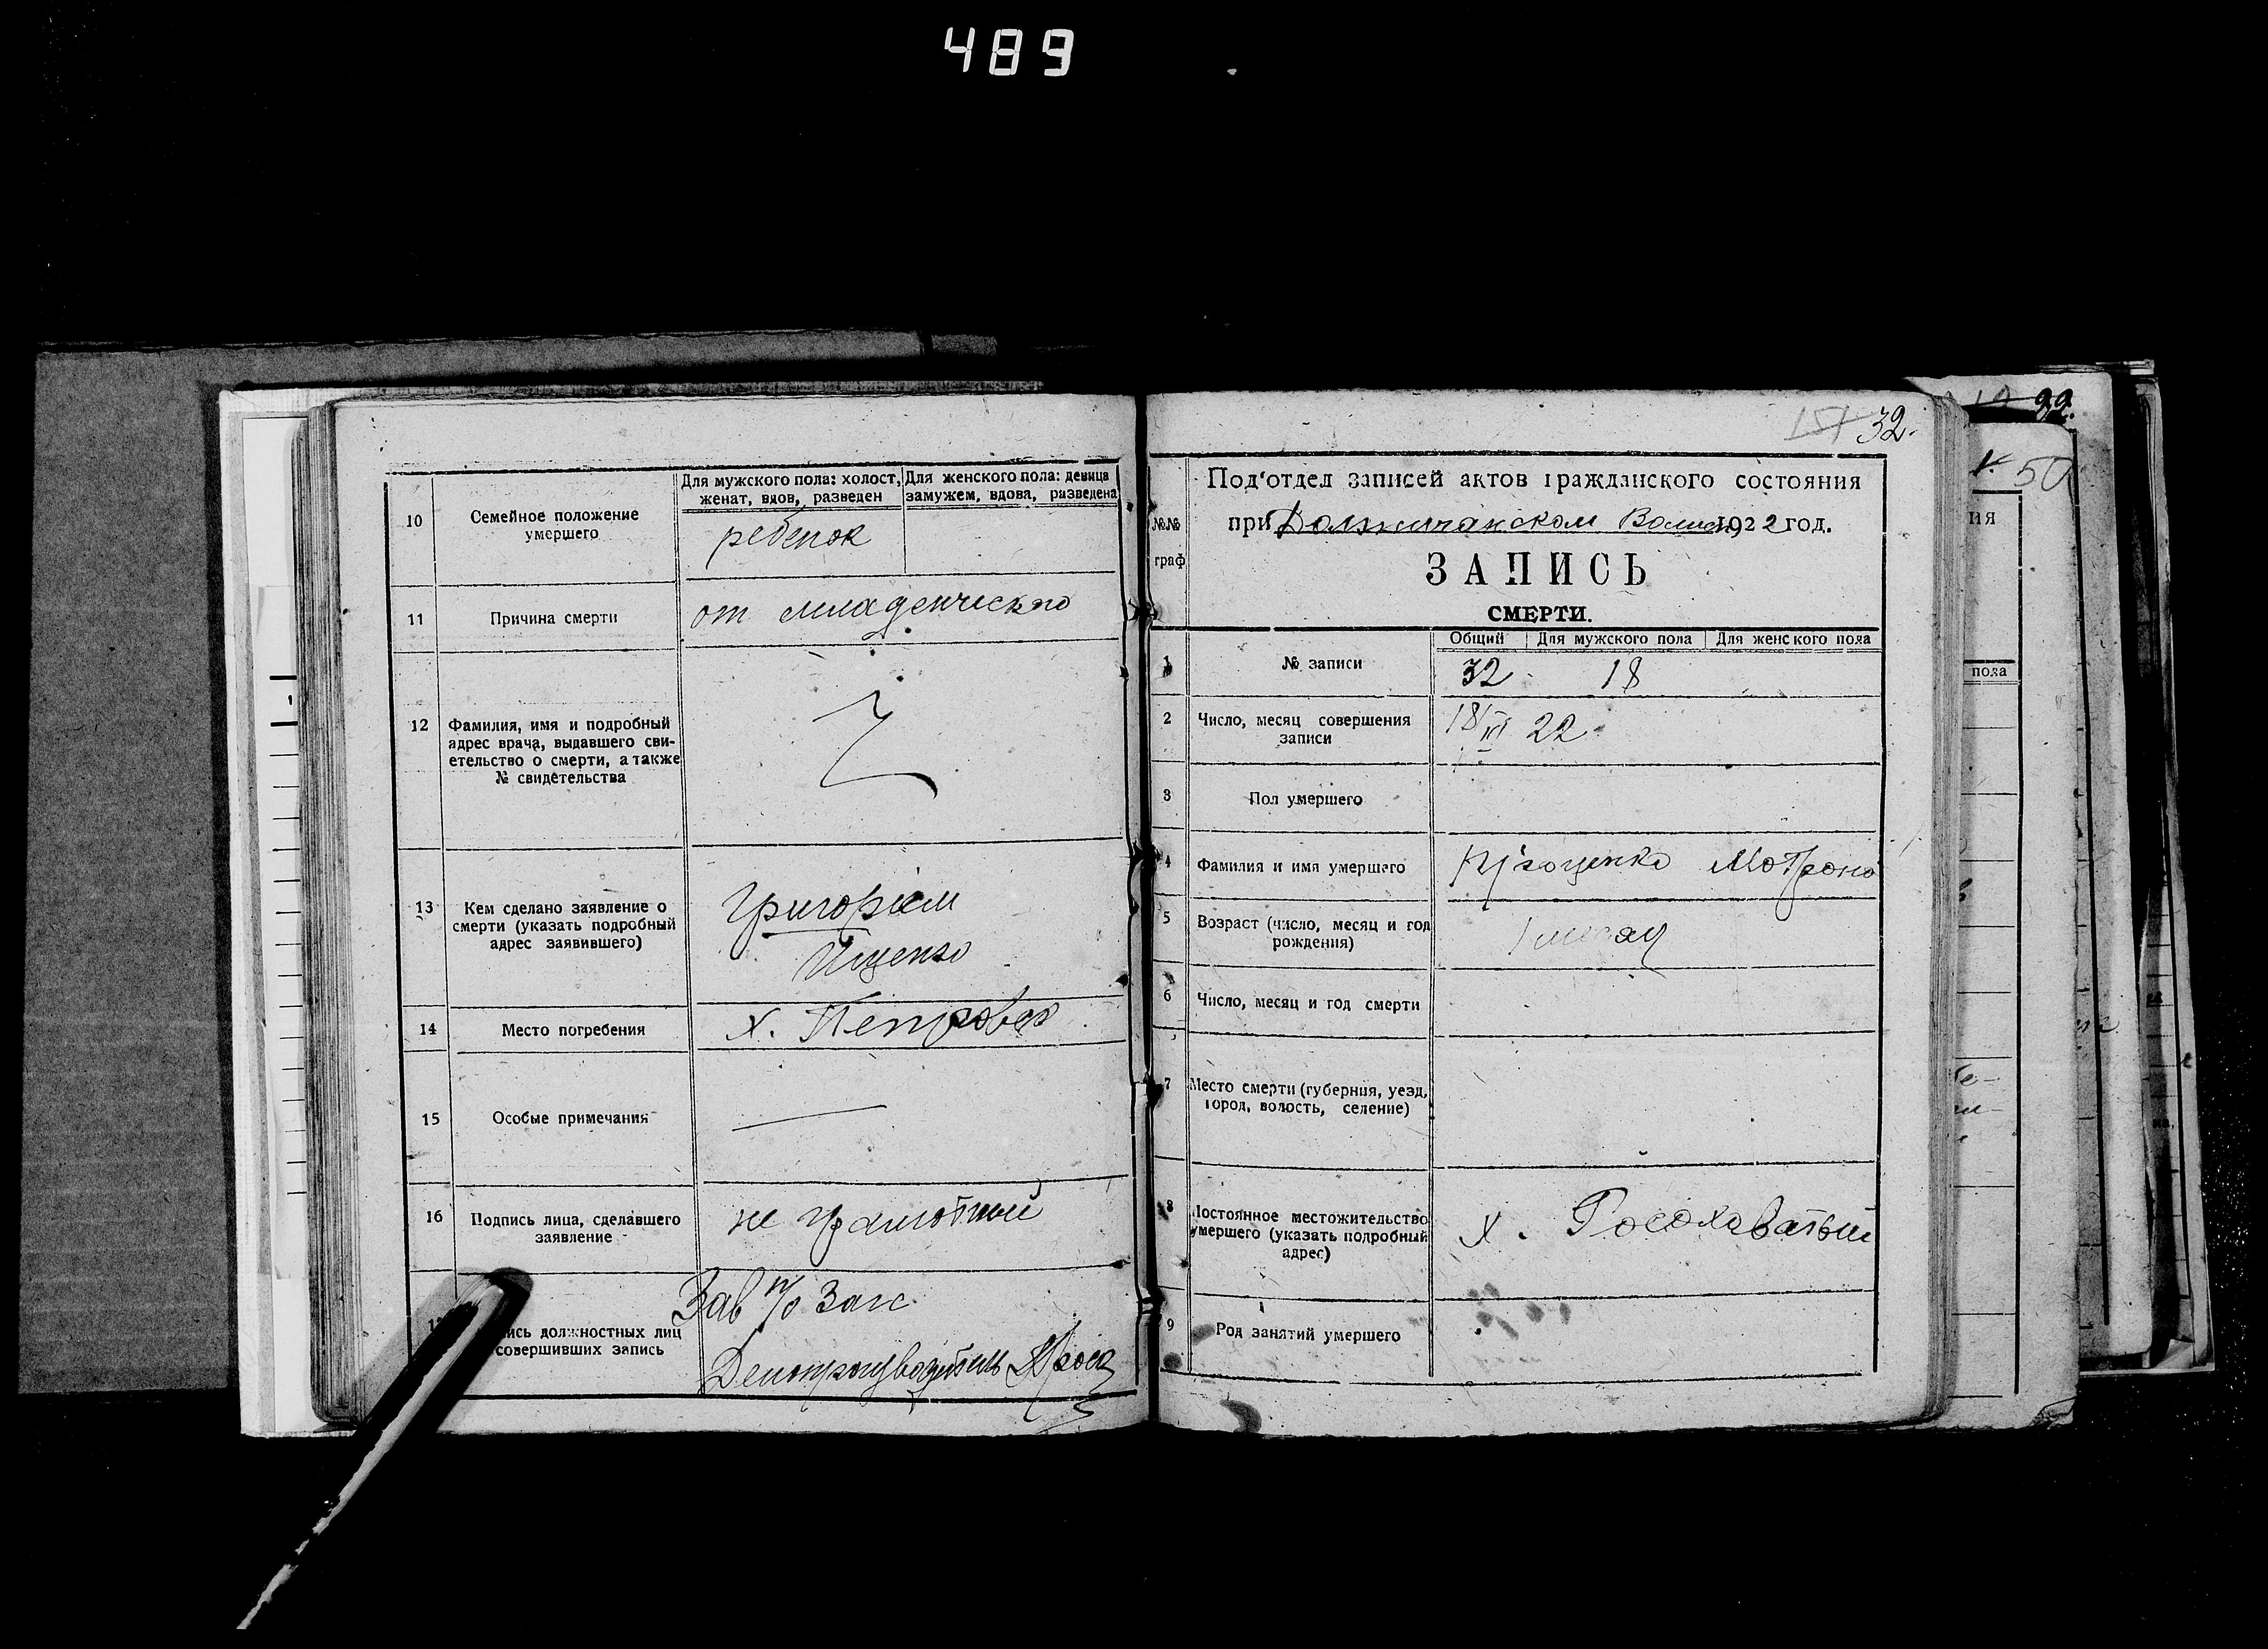 489
10
Семейное положение
умершего
Для мужского пола: холост,
женат, вдов, разведен
Для женского пола: девица
замужем, вдова, разведена
ребенок
11
Причина смерти
от младенческаго
12
Фамилия, имя и подробный
адрес врача, выдавшего сви-
етельство о смерти, а также
№ свидетельства
13
Кем сделано заявление о
смерти (указать подробный
адрес заявившего)
Григорiем
Ищенко
14
Место погребения
х. Петровск
15
Особые примечания
16
Подпись лица, сделавшего
заявление
не грамотный
ись должностных лиц
совершивших запись
Зав п/о Загс
Делопроизводитель
151 32.
№№
граф
Под'отдел записей актов гражданского состояния
при Волисп 1922 год.
ЗАПИСЬ
СМЕРТИ.
Общий
Для мужского пола
Для женского пола
1
№ записи
32 18
2
Число, месяц совершения
записи
18/III 22
3
Пол умершего
4
Фамилия и имя умершего
Мотрона
5
Возраст (число, месяц и год
рождения)
1 месяц
6
Число, месяц и год смерти
7
Место смерти (губерния, уезд,
город, волость, селение)
8
Постоянное местожительство
умершего (указать подробный
адрес)
х. Росоховатый
9
Род занятий умершего
50
ия
пола